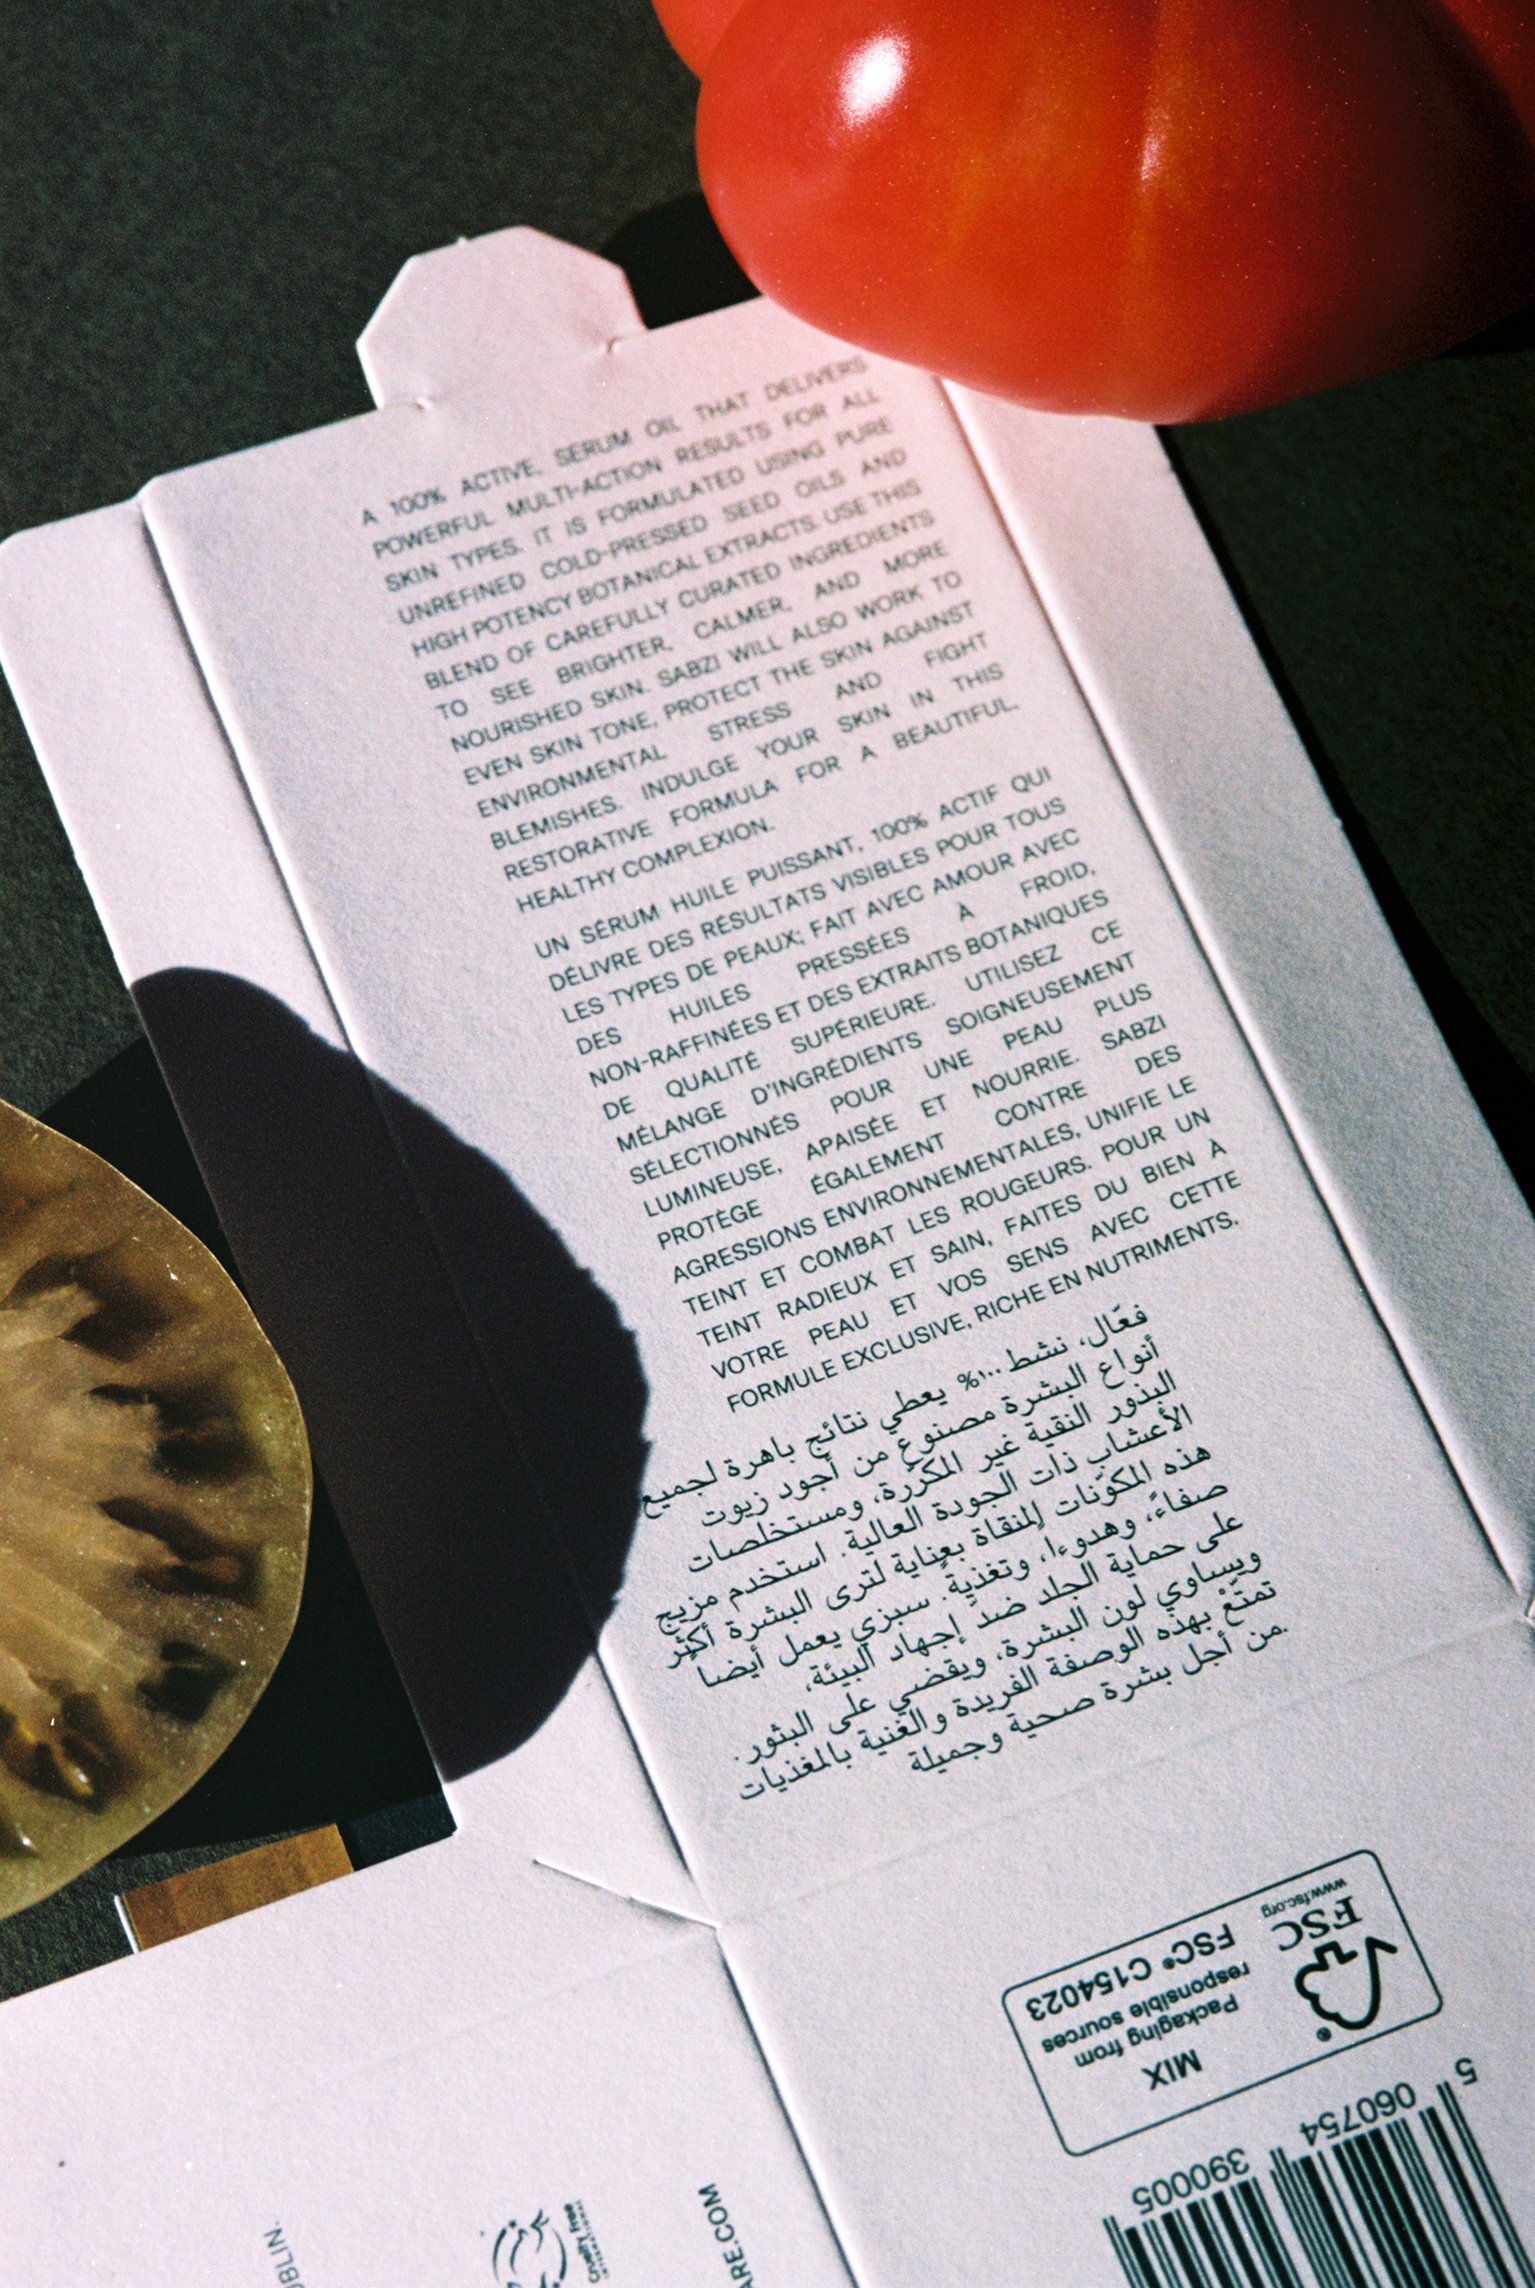 A 100% ACTIVE, SERUM OIL THAT DELIVERS
POWERFUL MULTI-ACTION RESULTS FOR ALL
SKIN TYPES. IT IS FORMULATED USING PURE
UNREFINED COLD-PRESSED SEED OILS AND
HIGH POTENCY BOTANICAL EXTRACTS. USE THIS
BLEND OF CAREFULLY CURATED INGREDIENTS
TO SEE BRIGHTER, CALMER, AND MORE
NOURISHED SKIN. SABZI WILL ALSO WORK TO
EVEN SKIN TONE, PROTECT THE SKIN AGAINST
ENVIRONMENTAL STRESS AND FIGHT
BLEMISHES. INDULGE YOUR SKIN IN THIS
RESTORATIVE FORMULA FOR A BEAUTIFUL,
HEALTHY COMPLEXION.
UN SÉRUM HUILE PUISSANT, 100% ACTIF QUI
DÉLIVRE DES RÉSULTATS VISIBLES POUR TOUS
LES TYPES DE PEAUX; FAIT AVEC AMOUR AVEC
DES HUILES PRESSÉES À FROID,
NON-RAFFINÉES ET DES EXTRAITS BOTANIQUES
DE QUALITÉ SUPÉRIEURE. UTILISEZ CE
MÉLANGE D'INGRÉDIENTS SOIGNEUSEMENT
SÉLECTIONNÉS POUR UNE PEAU PLUS
LUMINEUSE, APAISÉE ET NOURRIE. SABZI
PROTÈGE ÉGALEMENT CONTRE DES
AGRESSIONS ENVIRONNEMENTALES, UNIFIE LE
TEINT ET COMBAT LES ROUGEURS. POUR UN
TEINT RADIEUX ET SAIN, FAITES DU BIEN À
VOTRE PEAU ET VOS SENS AVEC CETTE
FORMULE EXCLUSIVE, RICHE EN NUTRIMENTS.
فعّال، نشط ١٠٠% يعطي نتائج باهرة لجميع
أنواع البشرة مصنوع من أجود زيوت
البذور النقية غير المكررة، ومستخلصات
الأعشاب ذات الجودة العالية. استخدم مزيج
هذه المكوّنات المنقاة بعناية لترى البشرة أكثر
صفاءً، وهدوءا، وتغذيةً. سبزي يعمل أيضا
على حماية الجلد ضد إجهاد البيئة،
ويساوي لون البشرة، ويقضي على البثور.
تمتّعْ بهذه الوصفة الفريدة والغنية بالمغذيات
من أجل بشرة صحية وجميلة.
FSC
www.fsc.org
MIX
Packaging from
responsible sources
FSC® C154023
5 060754 390005
Cruelty Free
INTERNATIONAL
ARE.COM
UBLIN.